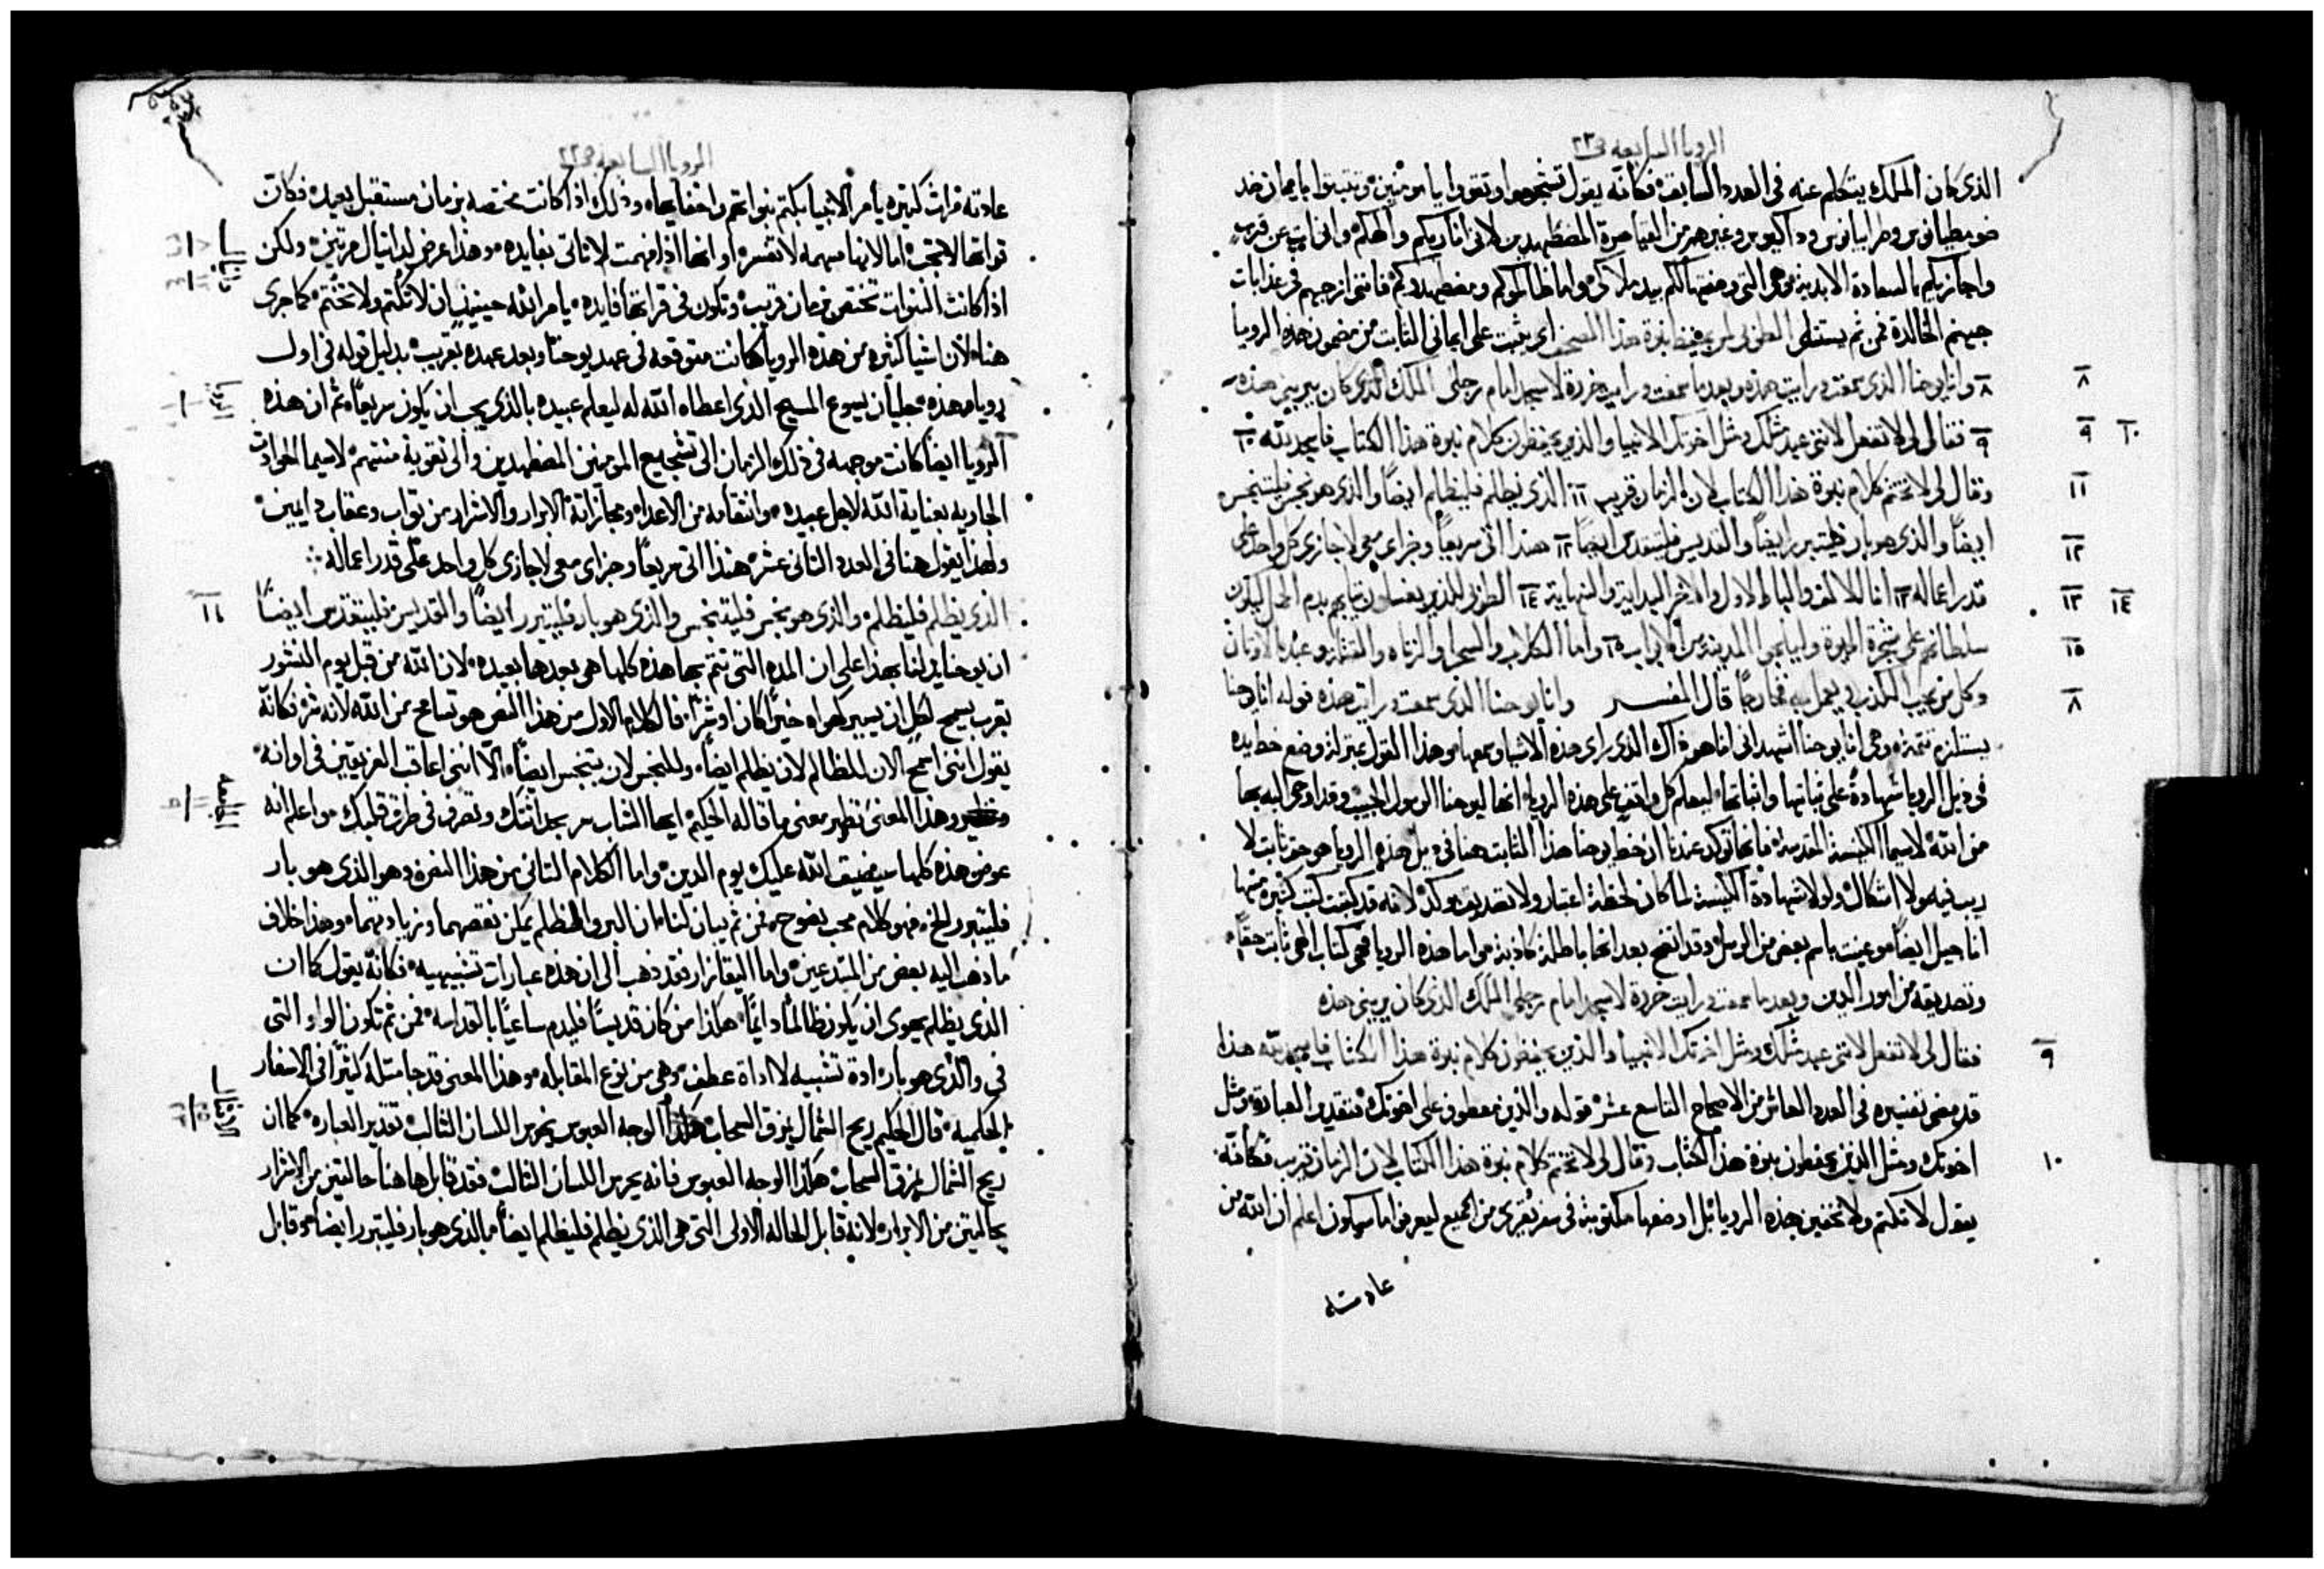 الرويا السابعه ص٢٢
الذي كان الملاك يتكلم عنه في العدد السابق فكانه يقول تشجعوا وتقووا يا مومنين وتثبتوا بايمان ضد
ضومطيانوس وطرايانوس وداكيوس وغيرهم من القياصرة المضطهدين لاني انا ربكم والهكم واني ات عن قريب
واجازيكم بالسعادة الابدية وهي التي وصفتها لكم بيد ملاكي واما ظالموكم ومضطهدوكم فانني ازجهم في عذابات
جهنم الخالدة فمن ثم يستتلي الطوبى لمن يحفظ نبوة هذا المصحف اي يثبت على ايماني الثابت من مضمون هذه الرويا
٨ وانا يوحنا الذي سمعت ورايت هذه وبعد ما سمعت ورايت خررت لاسجد امام رجلي الملاك الذي كان يريني هذه
٩ فقال لي لا تفعل لانني عبد مثلك ومثل اخوتك الانبيا والذين يحفظون كلام نبوة هذا الكتاب فاسجد لله ١٠
وقال لي لا تختم كلام نبوة هذا الكتاب لان الزمان قريب ١١ الذي يظلم فليظلم ايضًا والذي هو نجس فليتنجس
ايضًا والذي هو بار فليتبرر ايضًا والقديس فليتقدس ايضًا ١٢ هنذا اتي سريعًا وجزاي معي لاجازي كل واحد على
قدر اعماله ١٣ انا الالف واليا الاول والاخر البداية والنهاية ١٤ الطوبى للذين يغسلون ثيابهم بدم الحمل ليكون
سلطانهم على شجرة الحيوة وليدخلوا المدينة من الابواب ١٥ واما الكلاب والسحرا والزناه والقتله وعبدة الاوثان
وكل من يحب الكذب ويعمل به فخارجًا قال المفسر وانا يوحنا الذي سمعت ورايت هذه قوله انا هنا
يستلزم تتمة وهي انا يوحنا اشهد اني انا هو ذاك الذي راى هذه الاشيا وسمعها وهذا القول بمنزلة وضع خط يده
في ذيل الرويا شهادة على ثباتها واثباتها ليعلم كل واقف على هذه الرويا انها ليوحنا الرسول الحبيب وقد اوحي اليه بها
من الله لاسيما الكنيسة المقدسة فانها توكد عندنا ان خط يوحنا هذا الثابت هنا في ذيل هذه الرويا هو حق ثابت لا
ريب فيه ولا اشكال ولولا شهادة الكنيسة لما كان لخطه اعتبار ولا تصديق وكد لانه قد كتبت كتب كثيره منها
اناجيل ايضًا موعينت باسم بعض من الرسل وقد اتضح بعد انها باطلة كاذبة واما هذه الرويا فهي كتاب الهي ثابت حقًا
وتصديقه من امور الدين وبعد ما سمعت ورايت خررت لاسجد امام رجلي الملاك الذي كان يريني هذه
٩ فقال لي لا تفعل لانني عبد مثلك ومثل اخوتك الانبيا والذين يحفظون كلام نبوة هذا الكتاب فاسجد لله هذا
قد مضى تفسيره في العدد العاشر من الاصحاح التاسع عشر قوله والذين معطوف على اخوتك فتقدير العبارة ومثل
١٠ اخوتك ومثل الذين يحفظون نبوة هذا الكتاب وقال لي لا تختم كلام نبوة هذا الكتاب لان الزمان قريب فكانه
يقول لا تكتم ولا تخفين هذه الرويا بل اوضعها مكتوبة في سفر يقرى من الجميع ليعرفوا ما سيكون اعلم ان الله من
عادته
الرويا السابعه ص٢٢
عادته مرات كثيره يامر الانبيا بكتم نبواتهم واخفايها وذلك اذا كانت مختصه بزمان مستقبل بعيد فكان
نواتها لا تجب اما لانها مبهمه لا تفسر او انها اذا فهمت لا تاتي بفايده وهذا عرض لدانيال مرتين ولكن
اذا كانت النبوات تختص بزمان قريب وتكون في قراتها فايده يامر الله حينيذ بان لا تكتم ولا تختم كما جرى
هنا لان اشيا كثيره من هذه الرويا كانت متوقعه في عهد يوحنا وبعد عهده بقريب بدليل قوله في اول
روياه هذه جليان يسوع المسيح الذي اعطاه الله له ليعلم عبيده بالذي يجب ان يكون سريعًا ثم ان هذه
الرويا ايضًا كانت موجهه في ذلك الزمان الى تشجيع المومنين المضطهدين والى تقوية منتهم لاسيما الحوادث
الجاريه بعناية الله لاجل عبيده وانتقامه من الاعداء ومجازاته الابرار والاشرار من ثواب وعقاب دايمين
ولهذا يقول هنا في العدد الثاني عشر هنذا اتي سريعًا وجزاي معي لاجازي كل واحد على قدر اعماله
١١ الذي يظلم فليظلم والذي هو نجس فليتنجس والذي هو بار فليتبرر ايضًا والقديس فليتقدس ايضًا
ان يوحنا يدلنا بهذا على ان المده التي تتم بها هذه كلها هي بعدها بعيده لان الله من قبل يوم النشور
بقرب يسمح لكل ان يسير كهواه خيرًا كان او شرًا فالكلام الاول من هذا النص هو تسامح من الله لانه شر فكانه
يقول انني اسمح الان للظالم لان يظلم ايضًا وللنجس لان يتنجس ايضًا الا انني اعاقب الفريقين في اوانه
وهذا المعنى نظير معنى ما قاله الحكيم ايها الشاب سر بحداثتك وتصرف في طرق قلبك واعلم انه
عوض هذه كلها سيضيق الله عليك يوم الدين واما الكلام الثاني من هذا النص وهو الذي هو بار
فليتبرر الخ فهو كلام محب نصوح فمن ثم يبان لنا ان البر والظلم يمكن نقصهما وزيادتهما وهذا خلاف
ما ذهب اليه بعض من المبتدعين واما اليقازار فقد ذهب الى ان هذه عبارات تشبيهيه فكانه يقول كما ان
الذي يظلم يهوى ان يكون ظالمًا دايمًا هكذا من كان قديسًا فليدم ساعيًا بالقداسه فمن ثم تكون الواو التي
في والذي هو بار اداة تشبيه لا اداة عطف وهي من نوع المقابله وهذا المعنى قد جا مثله كثيرًا في الاسفار
الحكميه قال الحكيم ريح الشمال يمزق السحاب هكذا الوجه العبوس يحرس اللسان الثالب تقدير العباره كما ان
ريح الشمال يمزق السحاب هكذا الوجه العبوس فانه يحرس اللسان الثالب فقد قابل ها هنا حالتين من الاشرار
بحالتين من الابرار لانه قابل الحاله الاولى التي هي الذي يظلم فليظلم ايضًا بالذي هو بار فليتبرر ايضًا وقابل